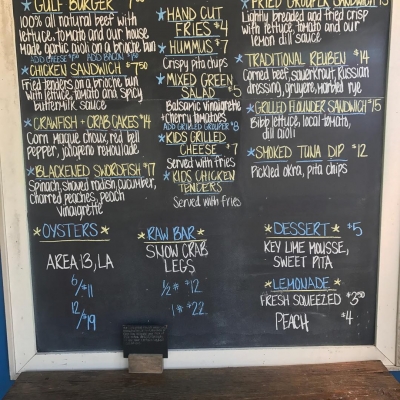 GULF BURGER
100% all natural beef with
lettuce, tomato and our house
Made garlic aioli on a brioche bun
ADD CHEESE ADD BACON
*CHICKEN SANDWICH $7.50
Fried tenders on a brioche bun
with lettuce, tomato and spicy
buttermilk sauce
*CRAWFISH + CRAB CAKES $14
Corn maque choux, red bell
pepper, jalapeño remoulade
*BLACKENED SWORDFISH $17
Spinach, shaved radish, cucumber,
charred peaches, peach
vinaigrette
*OYSTERS*
AREA 13, LA
6/$11
12/$19
*HAND CUT
FRIES $4
*HUMMUS $7
Crispy pita chips
*MIXED GREEN
SALAD $5
Balsamic vinaigrette
+cherry tomatoes
ADD GRILLED GROUPER $8
*KIDS GRILLED
CHEESE $7
Served with fries
*KIDS CHICKEN
TENDERS
Served with fries
*RAW BAR*
SNOW CRAB
LEGS
1/2 # $12
1 # $22
FRIED GROUPER SANDWICH
Lightly breaded and fried crisp
with lettuce, tomato and our
lemon dill sauce
*TRADITIONAL REUBEN $14
Corned beef, sauerkraut, Russian
dressing, gruyere, marbled rye
*GRILLED FLOUNDER SANDWICH $15
Bibb lettuce, local tomato,
dill aioli
*SMOKED TUNA DIP $12
Pickled okra, pita chips
*DESSERT* $5
KEY LIME MOUSSE,
SWEET PITA
*LEMONADE*
FRESH SQUEEZED $3.50
PEACH $4